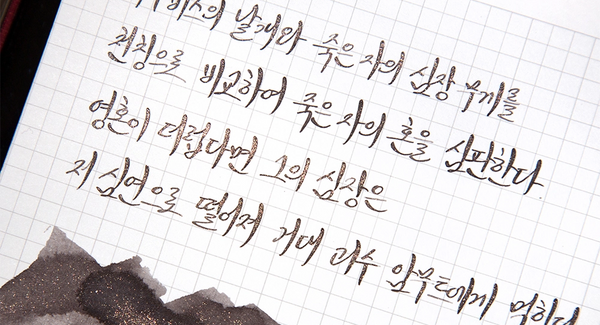 날개와 죽은 자의 심장 무게를
천칭으로 비교하여 죽은 자의 혼을 심판한다.
영혼이 더럽다면 그의 심장은
저 심연으로 떨어져 거대 괴수 암무트에게 먹힌다